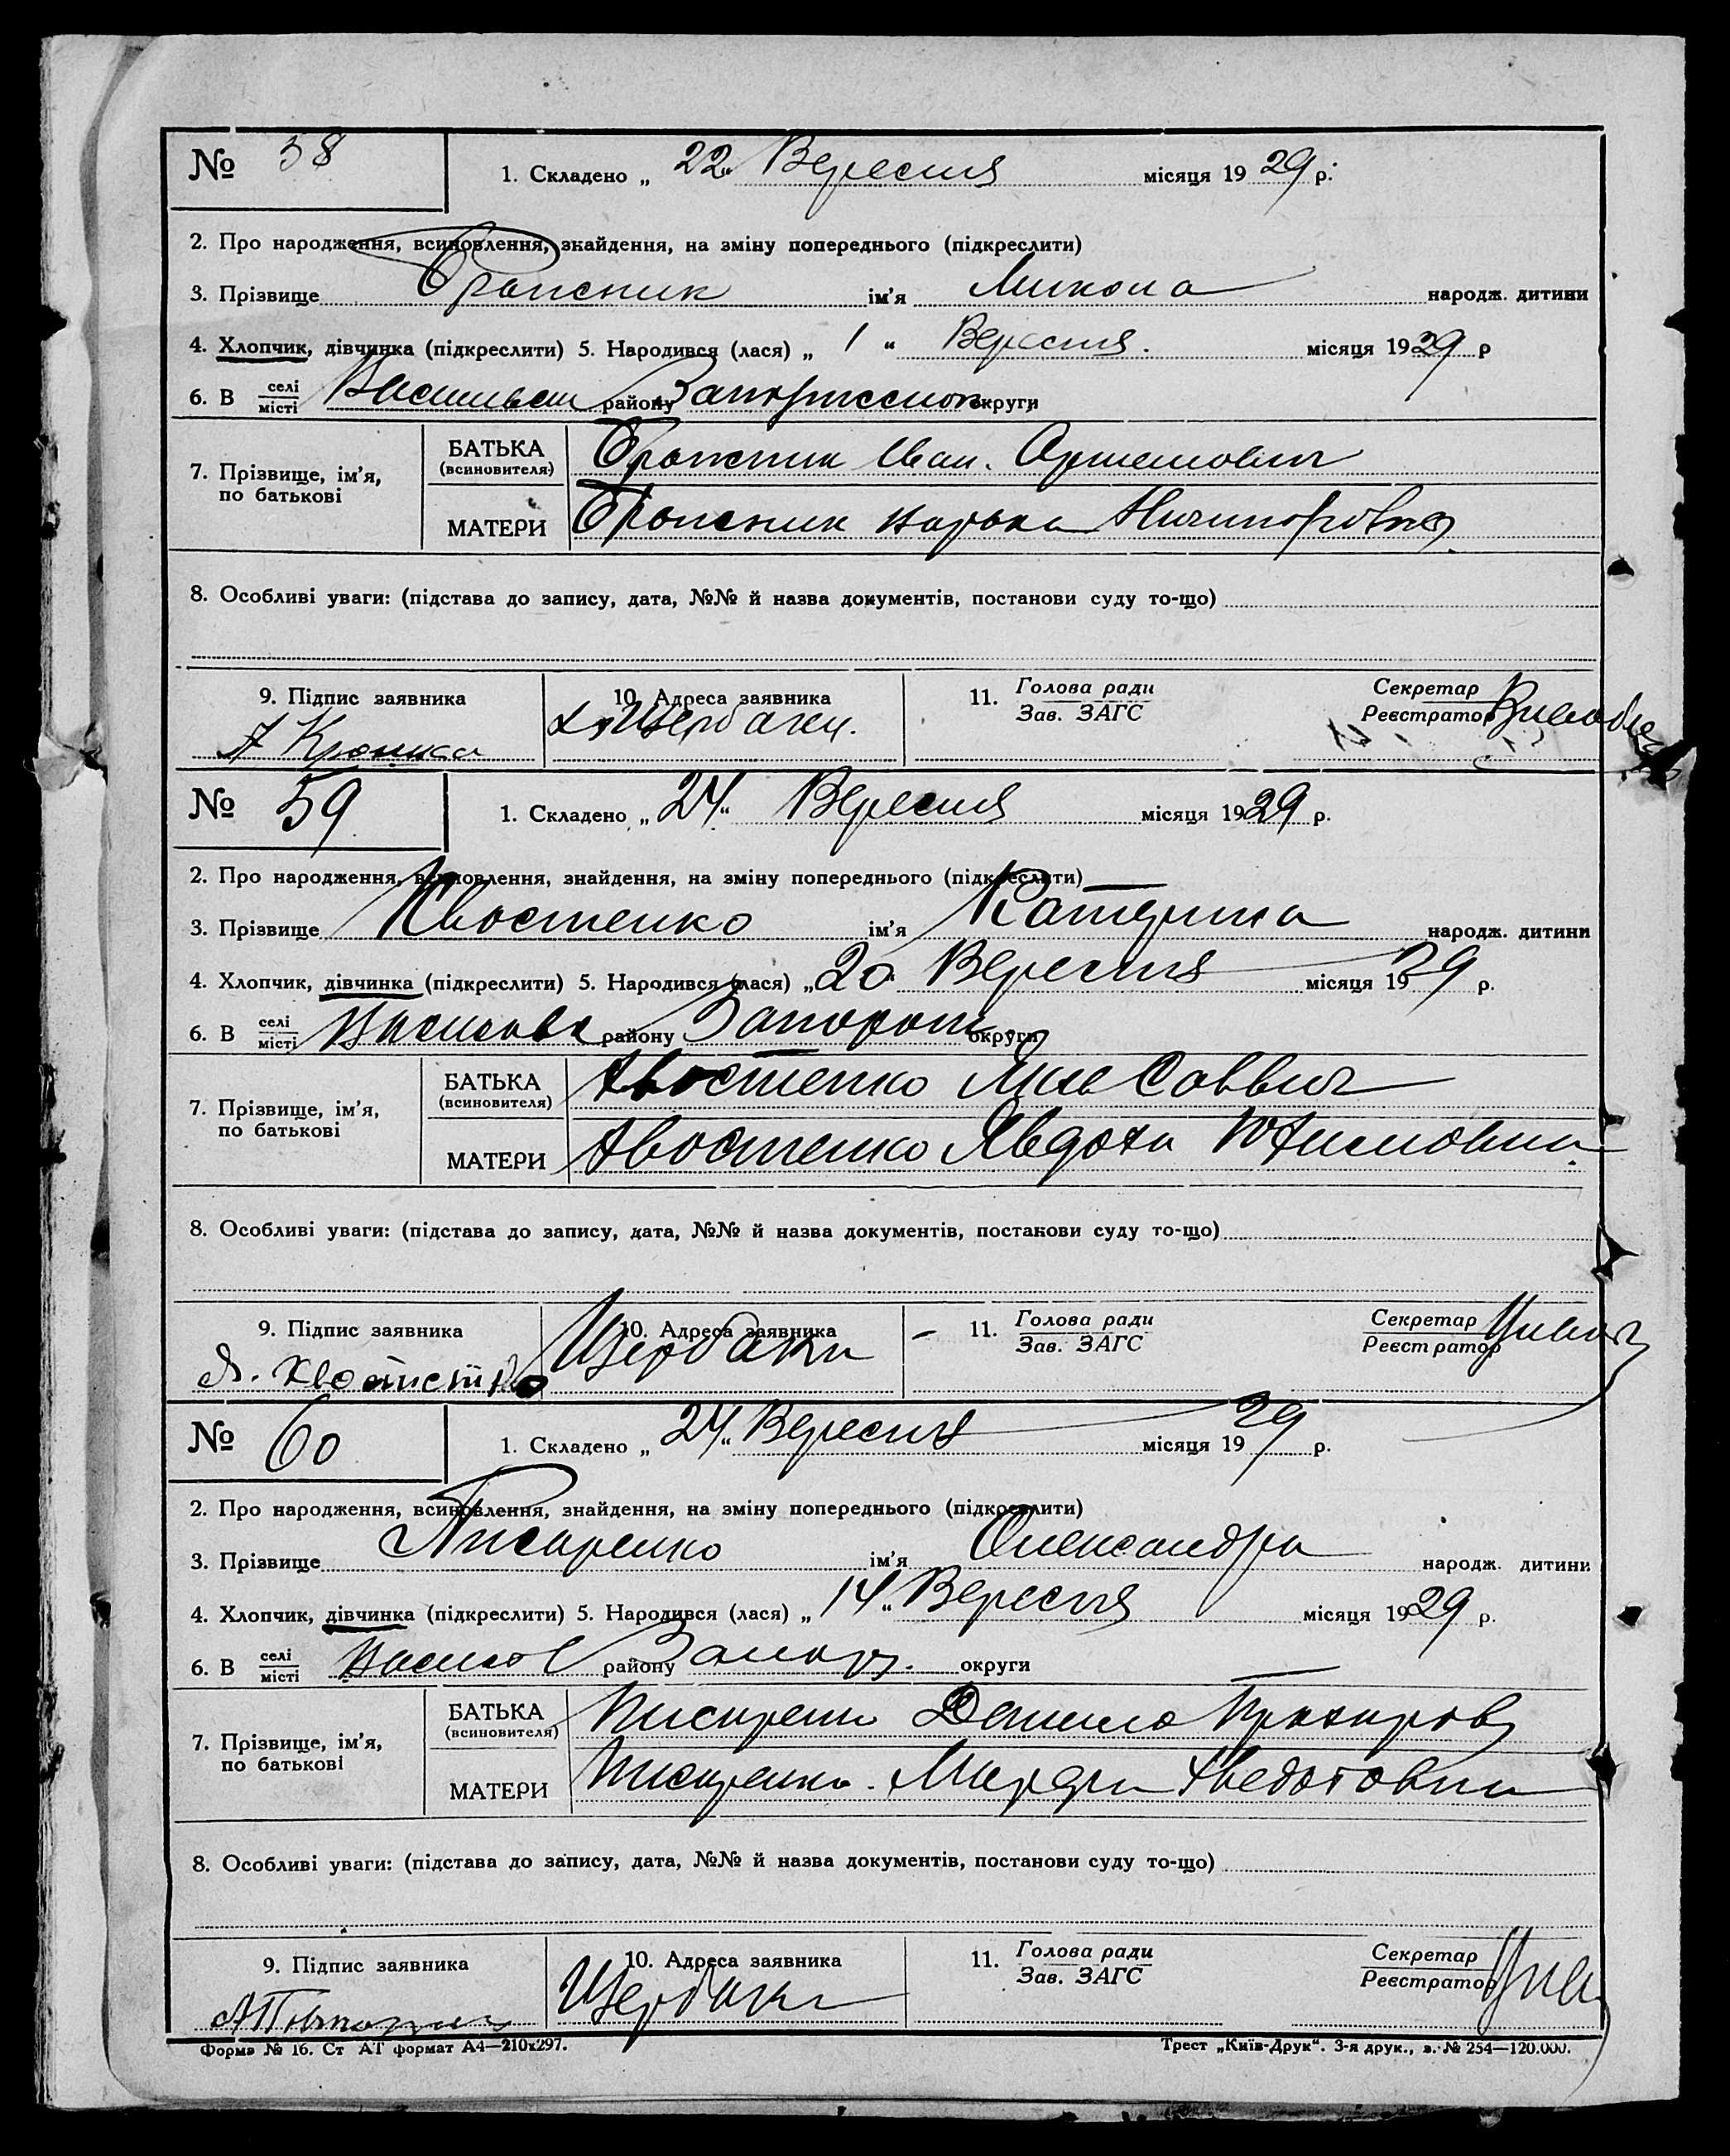 № 58 1. Складено „ 22 “ Вересня місяця 19 29 р.
2. Про народження, всиновлення, знайдення, на зміну попереднього (підкреслити)
3. Прізвище ім'я Микола народж. дитини
4. Хлопчик, дівчинка (підкреслити) 5. Народився (лася) „ 1 “ Вересня. місяця 19 29 р
6. В селі/місті району округи
7. Прізвище, ім'я, по батькові
БАТЬКА (всиновителя) Іван. Артемович
МАТЕРИ
8. Особливі уваги: (підстава до запису, дата, №№ й назва документів, постанови суду то-що)
9. Підпис заявника 10. Адреса заявника 11. Голова ради Секретар
Зав. ЗАГС Реєстратор
х. Щербаки.
№ 59 1. Складено „ 24 “ Вересня місяця 19 29 р.
2. Про народження, всиновлення, знайдення, на зміну попереднього (підкреслити)
3. Прізвище Хвостенко ім'я Катерина народж. дитини
4. Хлопчик, дівчинка (підкреслити) 5. Народився (лася) „ 20 Вересня місяця 19 29 р.
6. В селі/місті району округи
7. Прізвище, ім'я, по батькові
БАТЬКА (всиновителя) Хвостенко Яків Саввич
МАТЕРИ Хвостенко Явдоха
8. Особливі уваги: (підстава до запису, дата, №№ й назва документів, постанови суду то-що)
9. Підпис заявника 10. Адреса заявника 11. Голова ради Секретар
Зав. ЗАГС Реєстратор
Я. Хвостенко Щербаки
№ 60 1. Складено „ 24 “ Вересня місяця 19 29 р.
2. Про народження, всиновлення, знайдення, на зміну попереднього (підкреслити)
3. Прізвище Писаренко ім'я Олександра народж. дитини
4. Хлопчик, дівчинка (підкреслити) 5. Народився (лася) „ 14 “ Вересня місяця 19 29 р.
6. В селі/місті району округи
7. Прізвище, ім'я, по батькові
БАТЬКА (всиновителя) Данило
МАТЕРИ Писаренко Федотовна
8. Особливі уваги: (підстава до запису, дата, №№ й назва документів, постанови суду то-що)
9. Підпис заявника 10. Адреса заявника 11. Голова ради Секретар
Зав. ЗАГС Реєстратор
Щербаки
Форма № 16. Ст АТ формат А4—210х297. Трест „Київ-Друк“. 3-я друк., з. № 254—120.000.